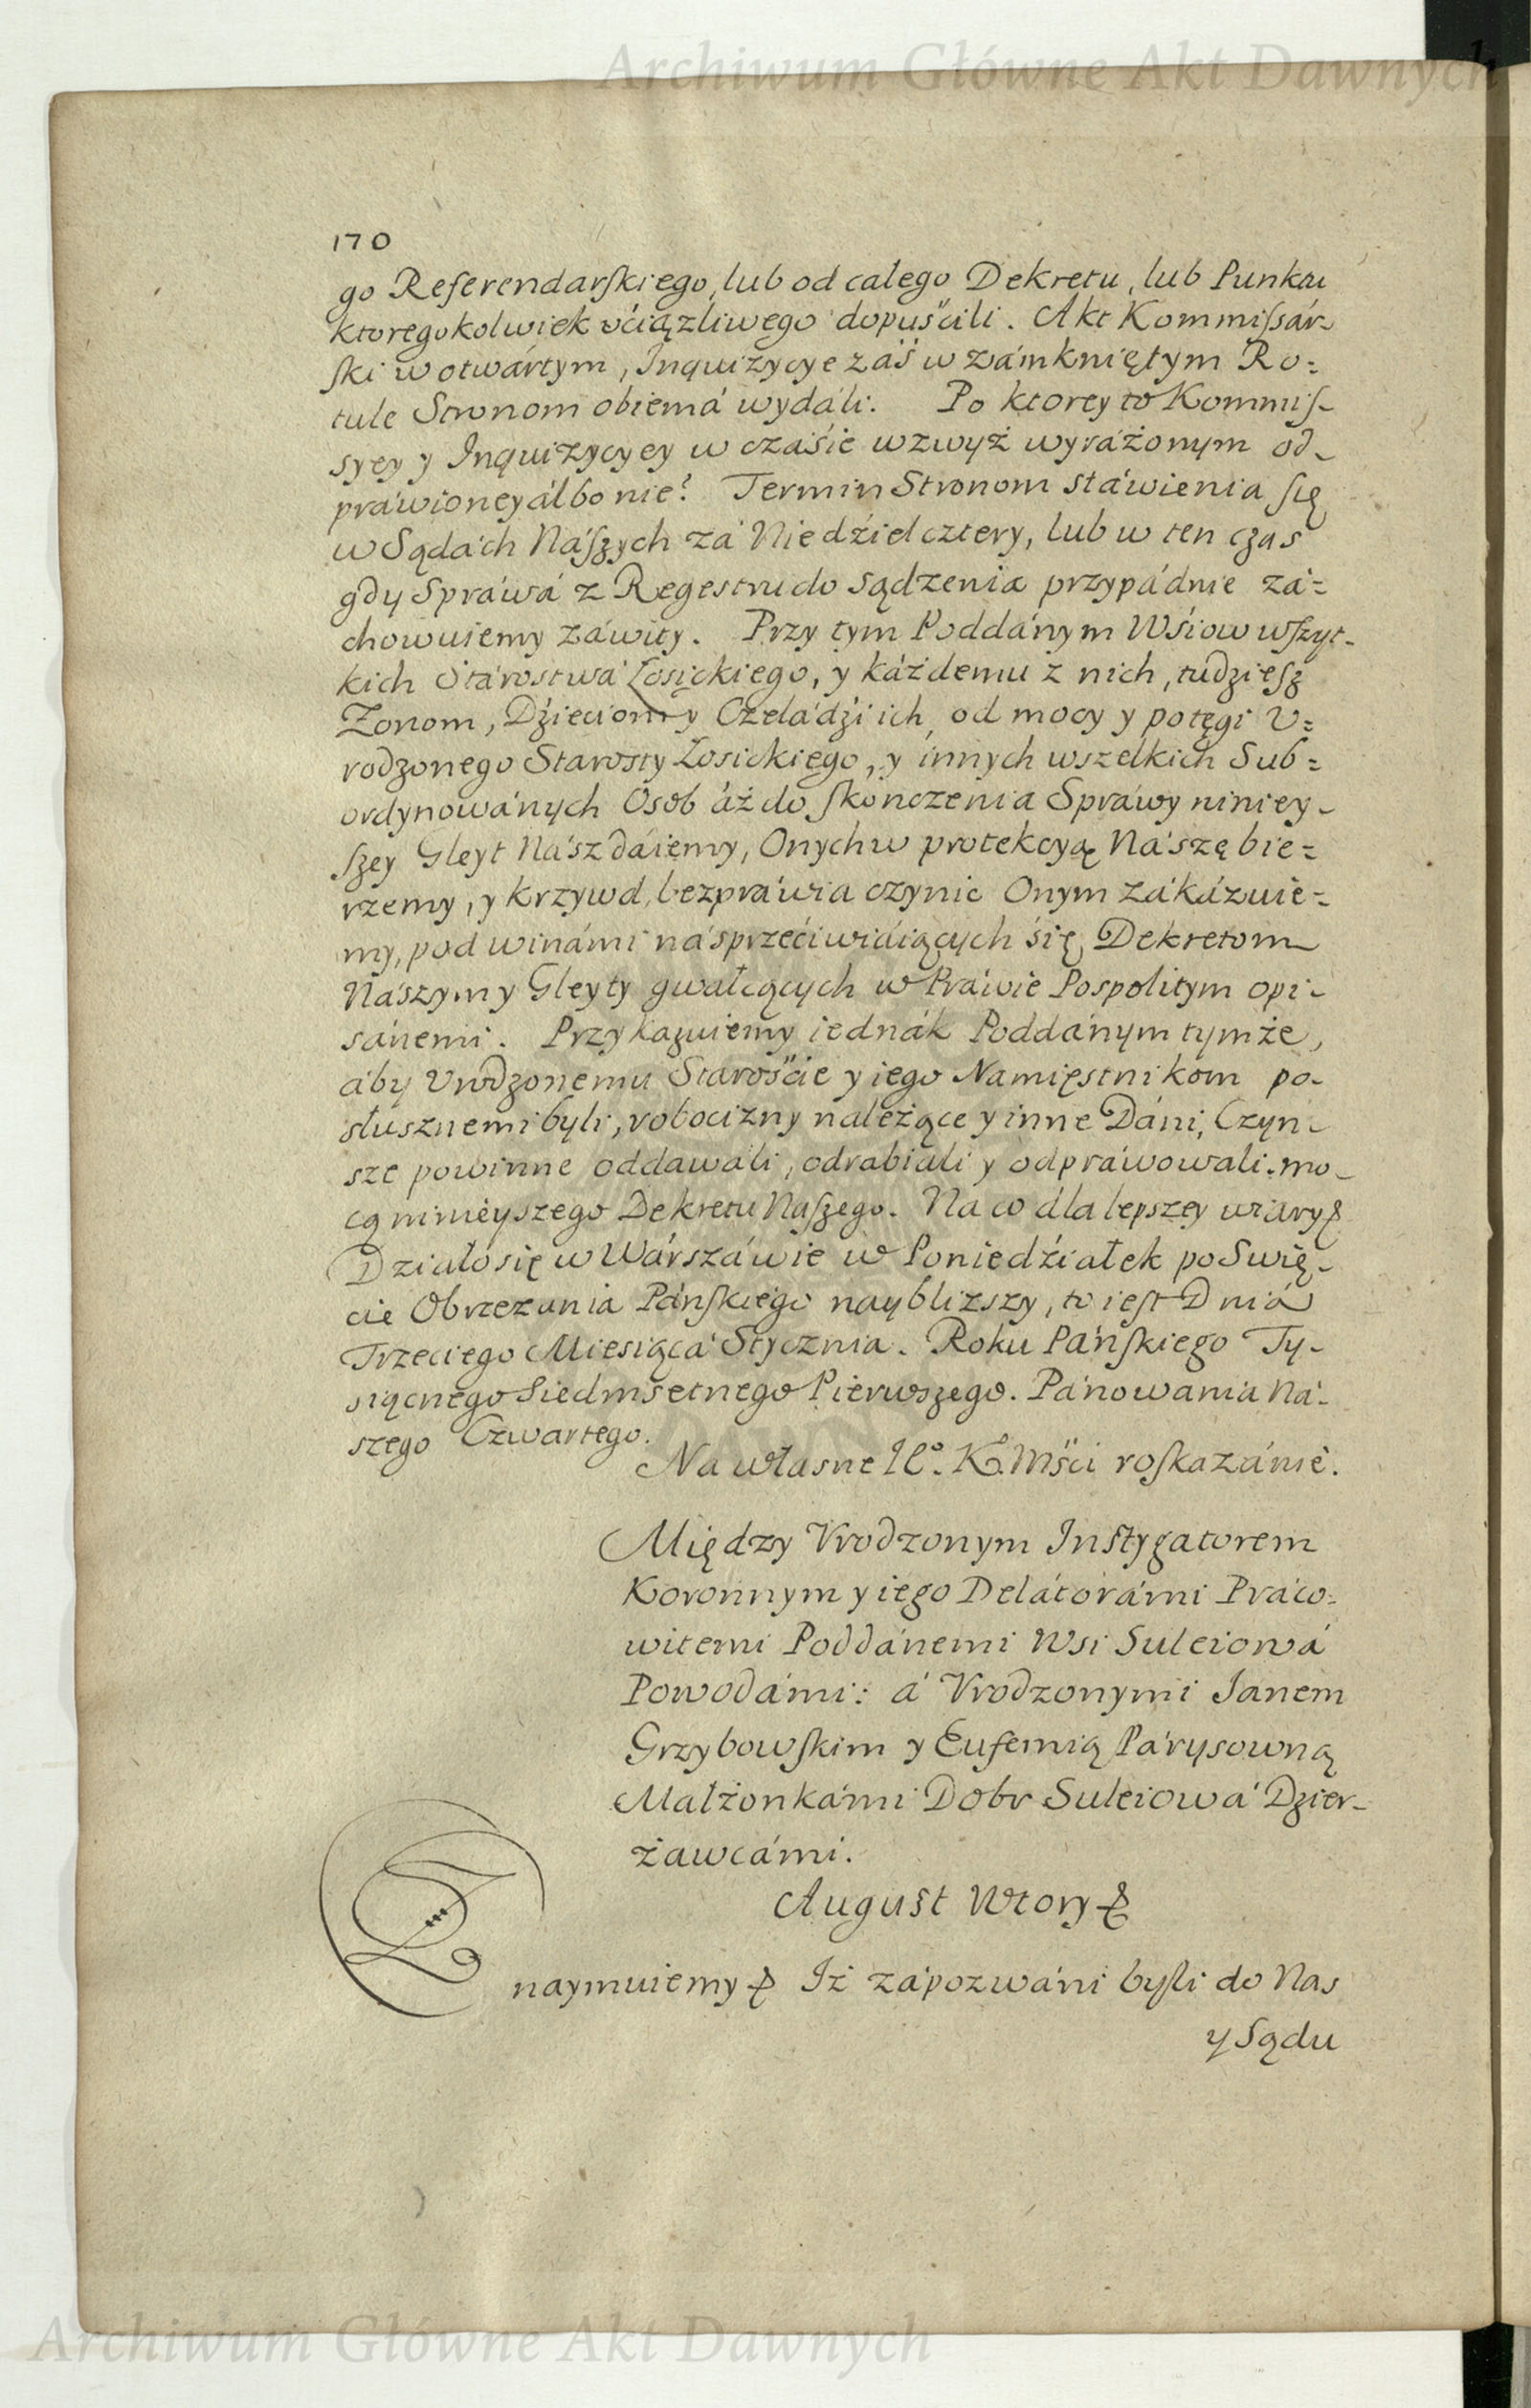 Archiwum Główne Akt Dawnych
170
go Referendarſkiego, lub od całego Dekretu, lub Punktu
ktoregokolwiek vćiążliwego dopuśćili. Akt Kommiſsár-
ſki w otwártym, Inquizycye záś w zámkniętym Ro=
tule Stronom obiemá wydáli. Po ktorey to Kommiſ-
syey y Inquizycyey w czáśie wzwyż wyráżonym od-
práwioney álbo nie? Termin Stronom stáwienia ſię
w Sądách Náſzych zá Niedźiel cztery, lub w ten czas
gdy Spráwá z Regestru do sądzenia przypádnie zá=
chowuiemy záwity. Przy tym Poddánym Wśiow wſzyt-
kich Stárostwá Łosickiego, y káżdemu z nich, tudzieſz
Zonom, Dźieciom y Czeládźi ich, od mocy y potęgi V=
rodzonego Starosty Łosickiego, y innych wszelkich Sub=
ordynowánych Osob áż do ſkończenia Spráwy niniey-
ſzey Gleyt Nász dáiemy, Onych w protekcyą Nászę bie=
rzemy, y krzywd, bezpráwia czynic Onym zákázuie=
my, pod winámi ná sprzećiwiáiących śię Dekretom
Nászym y Gleyty gwałcących w Práwie Pospolitym opi-
sánemi. Przykazuiemy iednák Poddánym tymże,
áby Vrodzonemu Starośćie y iego Namięstnikom po-
słusznemi byli, robocizny należące y inne Dáni, Czyn-
sze powinne oddawáli, odrabiáli y odpráwowali. mo-
cą ninieyszego Dekretu Naſzego. Na co dla lepszey wiary &
Działo się w Wárszáwie w Poniedźiałek po Swię-
cie Obrzezania Páńſkiego naybliższy, to ieſt Dniá
Trzeciego Miesiącá Stycznia. Roku Páńſkiego Ty-
siącnego Siedmsetnego Pierwszego. Pánowania Ná-
szego Czwartego.
Na własne JE°. K.Mśći roſkazánie.
Między Vrodzonym Instygatorem
Koronnym y iego Delátorámi Práco-
witemi Poddánemi Wsi Suleiowá
Powodámi: á Vrodzonymi Janem
Grzybowſkim y Eufemią Párysowną
Małżonkámi Dobr Suleiowá Dzier-
żawcámi.
August Wtory &
naymuiemy & Iż zápozwáni byſli do Nas
y Sądu
Archiwum Główne Akt Dawnych